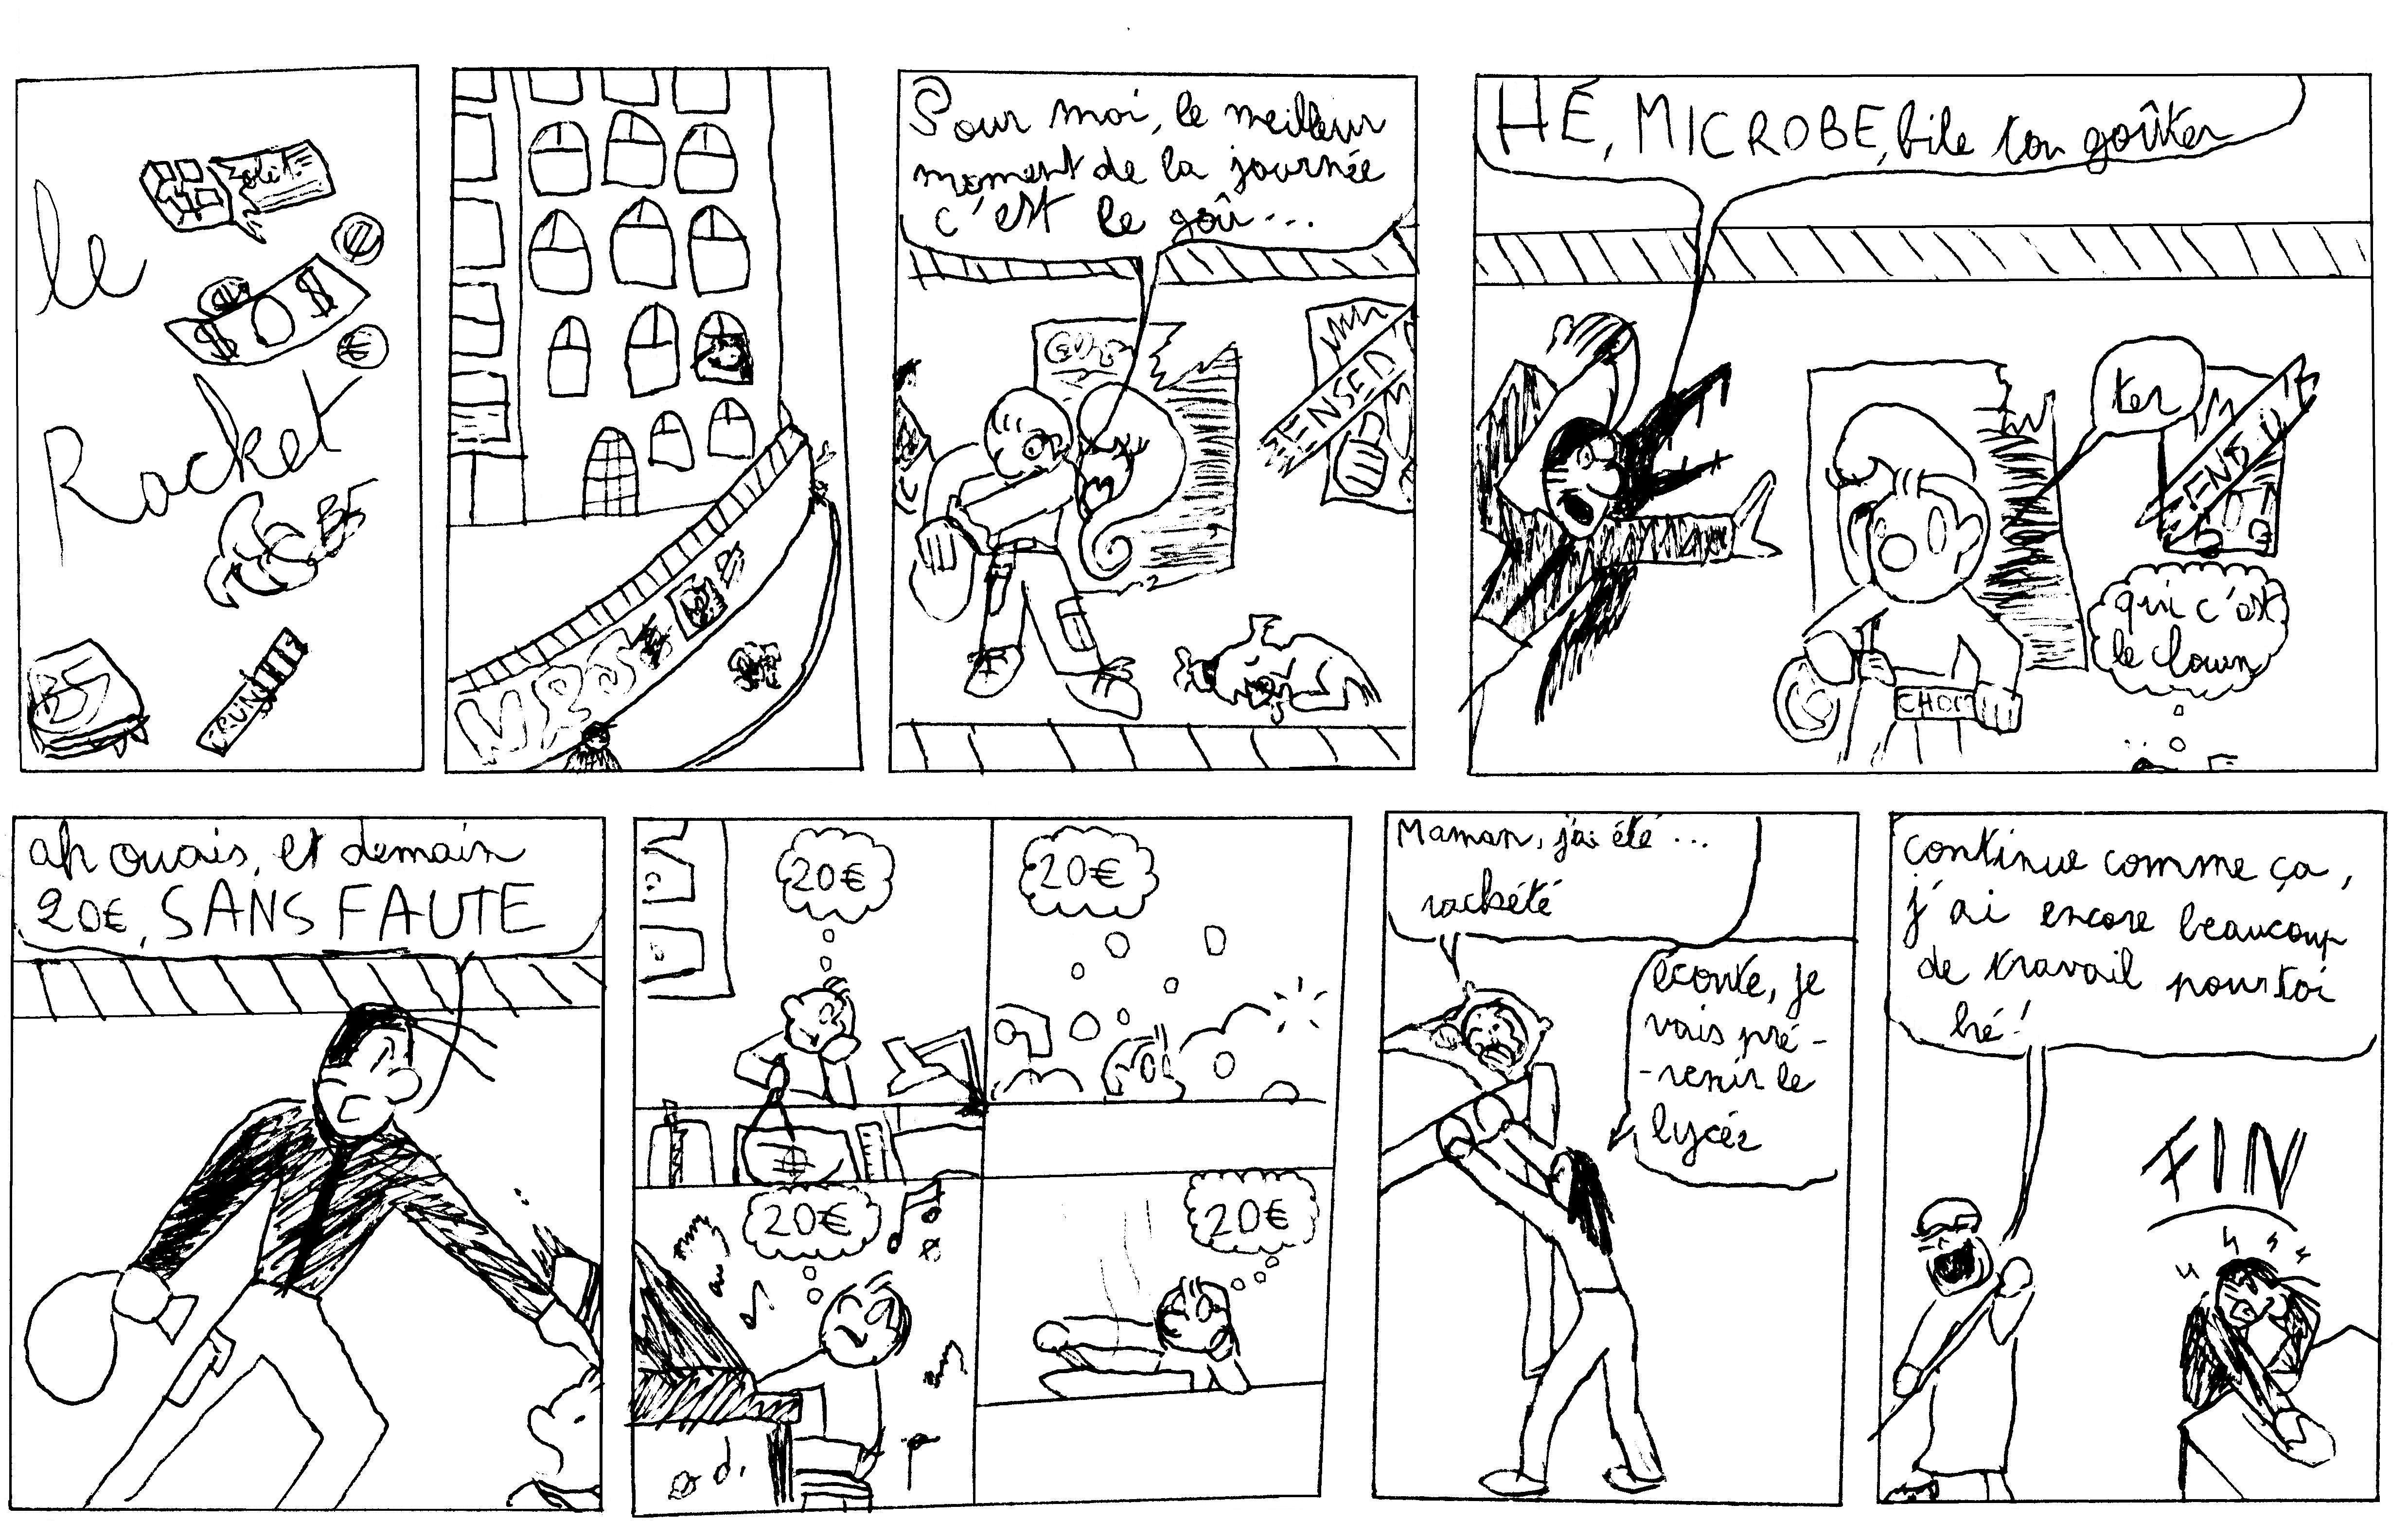 le
Racket
$ $
€
Pour moi, le meilleur
moment de la journée
c'est le goû...
HÉ, MICROBE, file ton goûter
ter
qui c'est
le clown
CHOC
ah ouais, et demain
20€, SANS FAUTE
20€
20€
20€
20€
Maman, j'ai été...
rackété
écoute, je
vais pré-
-venir le
lycée
continue comme ça,
j'ai encore beaucoup
de travail pour toi
hé!
FIN